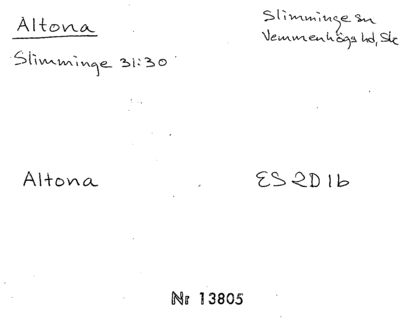 Altona
Slimminge sn
Vemmenhögs hd, Sk
Slimminge 31:30
Altona
ES 2D 1b
Nr 13805